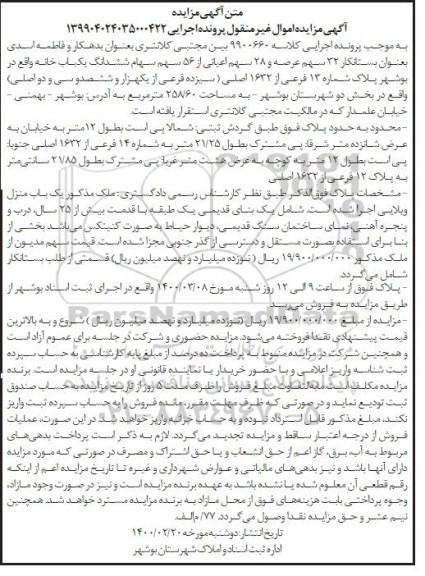 متن آگهی مزایده
آگهی مزایده اموال غیر منقول پرونده اجرایی ۱۳۹۹۰۴۰۲۴۰۳۵۰۰۰۴۲۲
به موجب پرونده اجرایی کلاسه ۹۹۰۰۶۶۰ بین مجتبی کلانتری بعنوان بدهکار و فاطمه اسدی
بعنوان بستانکار ۳۲ سهم عرصه و ۲۸ سهم اعیانی از ۵۶ سهم سهام ششدانگ یکباب خانه واقع در
بوشهر پلاک شماره ۱۳ فرعی از ۱۶۳۲ اصلی (سیزده فرعی از یکهزار و ششصد و سی و دو اصلی)
واقع در بخش دو شهرستان بوشهر - به مساحت ۲۵۸/۶۰ مترمربع به آدرس: بوشهر - بهمنی -
خیابان علمدار که در مالکیت مجتبی کلانتری استقرار یافته است.
-محدود به حدود پلاک فوق طبق گردش ثبتی: شمالا پی است بطول ۱۲متر به خیابان به
عرض شانزده متر شرقا: پی مشترک بطول ۲۱/۲۵ متر به شماره ۱۴ فرعی از ۱۶۳۲ اصلی جنوبا:
پی است بطول ۱۲ متر به کوچه به عرض هشت متر غربا: پی مشترک بطول ۲۱/۸۵ سانتی متر
به پلاک ۱۲ فرعی از ۱۶۳۲ اصلی
-مشخصات پلاک فوق الذکر طبق نظر کارشناس رسمی دادگستری: ملک مذکور یک باب منزل
ویلایی اجرا شده است. شامل یک بنای قدیمی یک طبقه با قدمت بیش از ۲۵ سال، درب و
پنجره آهنی نمای ساختمان سنگ قدیمی، دیوار حیاط به صورت کنیتکس می باشد بخشی از
بنا برای استفاده بصورت مستقل و دسترسی از گذر جنوبی مجزا شده است قیمت سهم مدیون از
ملک مذکور ۱۹/۹۰۰/۰۰۰/۰۰۰ ریال (نوزده میلیارد و نهصد میلیون ریال) قسمتی از طلب بستانکار
شامل می گردد.
-پلاک فوق از ساعت ۹ الی ۱۲ روز شنبه مورخ ۱۴۰۰/۰۳/۰۸ واقع در اجرای ثبت اسناد بوشهر از
طریق مزایده به فروش می رسد.
-مزایده از مبلغ ۱۹/۹۰۰/۰۰۰/۰۰۰ ریال (نوزده میلیارد و نهصد میلیون ریال) شروع و به بالاترین
قیمت پیشنهادی نقدا فروخته می شود. مزایده حضوری و شرکت در جلسه برای عموم آزاد است
و همچنین شرکت در مزایده منوط به پرداخت ده درصد از مبلغ پایه کارشناسی به حساب سپرده
ثبت شناسه واریز اعلامی و با حضور خریدار یا نماینده قانونی او در جلسه مزایده است. برنده
مزایده مکلف است مابه التفاوت مبلغ فروش را ظرف مدت ۵ روز از تاریخ مزایده به حساب صندوق
ثبت تودیع نماید و در صورتی که ظرف مهلت مقرر، مانده فروش را به حساب سپرده ثبت واریز
نکند، مبلغ مذکور قابل استرداد نبوده و به حساب خزانه واریز خواهد شد. در این صورت، عملیات
فروش از درجه اعتبار ساقط و مزایده تجدید می گردد. لازم به ذکر است پرداخت بدهی های
مربوط به آب، برق، گاز اعم از حق انشعاب و یا حق اشتراک و مصرف در صورتی که مورد مزایده
دارای آنها باشد و نیز بدهی های مالیاتی و عوارض شهرداری و غیره تا تاریخ مزایده اعم از اینکه
رقم قطعی آن معلوم شده یا نشده باشد به عهده برنده مزایده است و نیز در صورت وجود مازاد،
وجوه پرداختی بابت هزینه های فوق از محل مازاد به برنده مزایده مسترد خواهد شد. همچنین
نیم عشر و حق مزایده نقدا وصول می گردد. ۷۷/م الف.
تاریخ انتشار: دوشنبه مورخه ۱۴۰۰/۰۲/۲۰
اداره ثبت اسناد و املاک شهرستان بوشهر